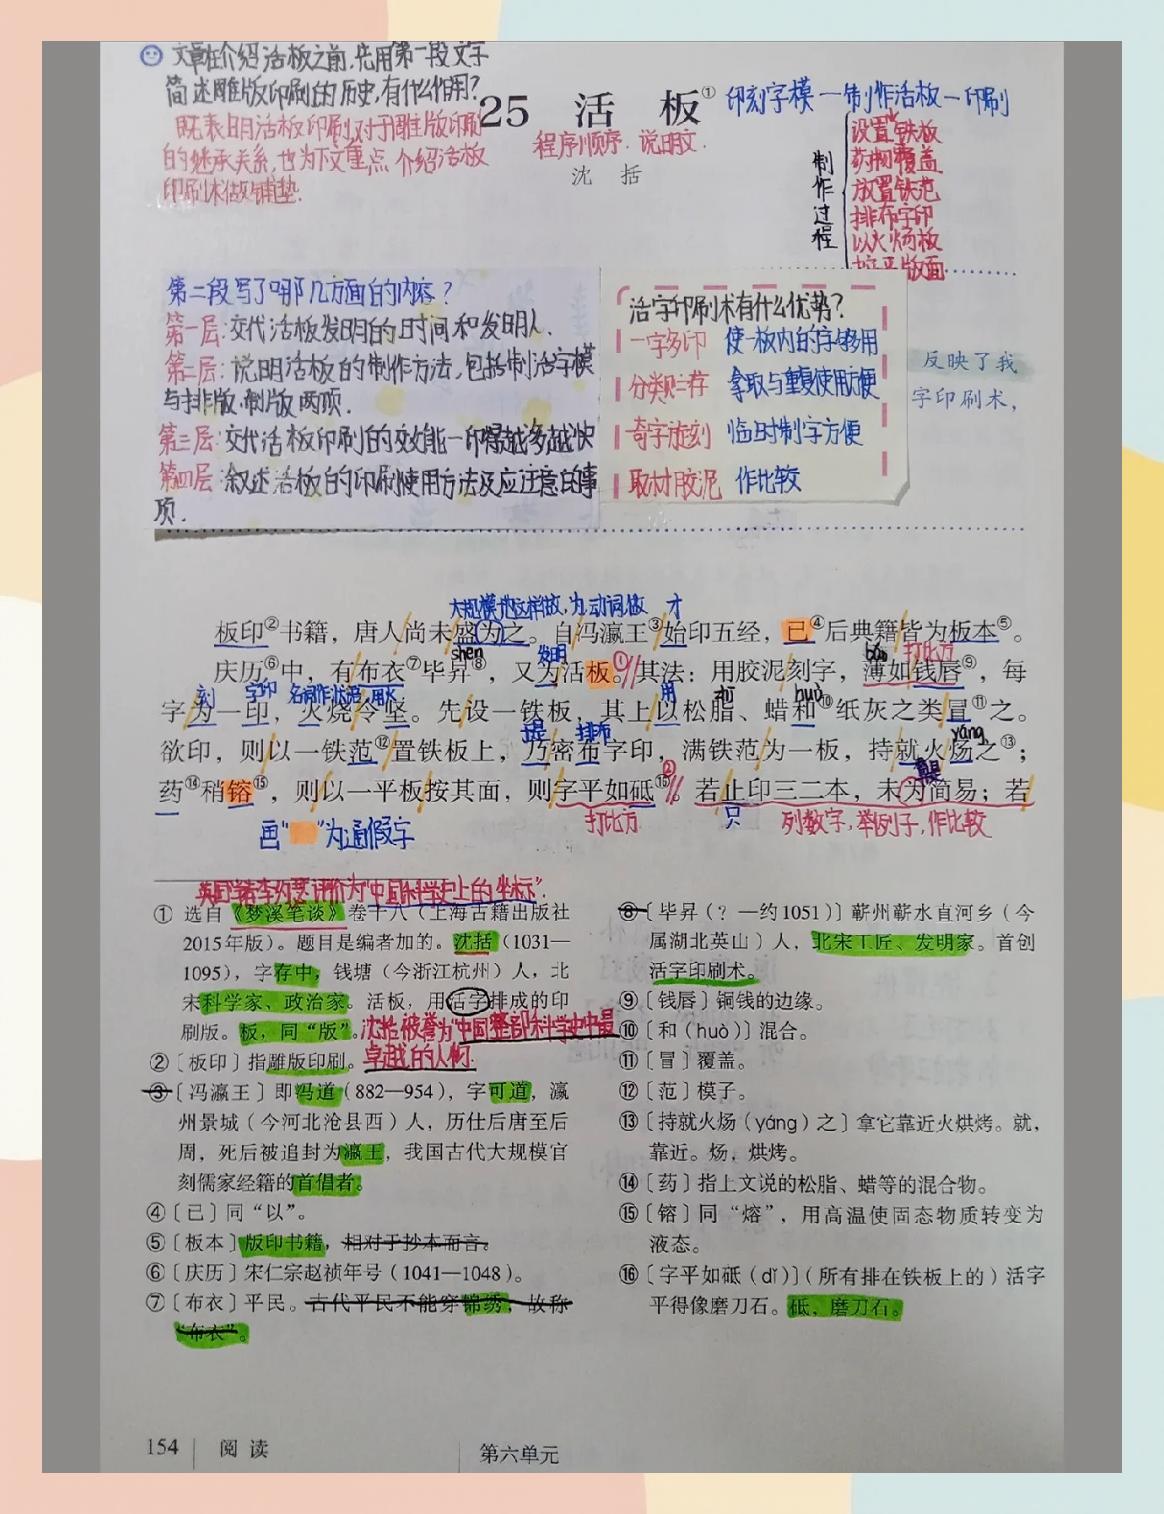 文章在介绍活板之前,先用第一段文字
简述雕版印刷的历史,有什么作用?
既表明活板印刷对于雕版印刷
的继承关系,也为下文重点介绍活板
印刷术做铺垫.
25 活板①
印刻字模一制作活板一印刷
程序顺序.说明文.
沈括
制作过程
设置铁板
药物覆盖
放置铁范
排布字印
以火炀板
按平版面
第二段写了哪几方面的内容?
第一层:交代活板发明的时间和发明人.
第二层:说明活板的制作方法,包括制活字模
与排版.制版两项.
第三层:交代活板印刷的效能一印得越多越快
第四层:叙述活板的印刷使用方法及应注意的事
项.
活字印刷术有什么优势?
一字多印 使一板内的字够用
分类贮存 拿取与重复使用方便
奇字旋刻 临时制字方便
取材胶泥 作比较
反映了我
字印刷术,
大规模地这样做,为,动词,做 才
板印②书籍,唐人尚未盛为之。自冯瀛王③始印五经,已④后典籍皆为板本⑤。
shèng 发明 ① báo 打比方
庆历⑥中,有布衣⑦毕昇⑧,又为活板。其法:用胶泥刻字,薄如钱唇⑨,每
刻 字印 名词作状语,用火 用 huò
字为一印,火烧令坚。先设一铁板,其上以松脂、蜡和⑩纸灰之类冒⑪之。
是 排布 yáng
欲印,则以一铁范⑫置铁板上,乃密布字印,满铁范为一板,持就火炀之⑬;
② 算是
药⑭稍镕⑮,则以一平板按其面,则字平如砥⑯。若止印三二本,未为简易;若
画“ ”为通假字
打比方
只
列数字,举例子,作比较
英国学者李约瑟评价为“中国科学史上的坐标”.
① 选自《梦溪笔谈》卷十八(上海古籍出版社
2015年版)。题目是编者加的。沈括(1031—
1095),字存中,钱塘(今浙江杭州)人,北
宋科学家、政治家。活板,用活字排成的印
刷版。板,同“版”。
沈括被誉为“中国整部科学史中最
卓越的人物.
②〔板印〕指雕版印刷。
③〔冯瀛王〕即冯道(882—954),字可道,瀛
州景城(今河北沧县西)人,历仕后唐至后
周,死后被追封为瀛王,我国古代大规模官
刻儒家经籍的首倡者。
④〔已〕同“以”。
⑤〔板本〕版印书籍,相对于抄本而言。
⑥〔庆历〕宋仁宗赵祯年号(1041—1048)。
⑦〔布衣〕平民。古代平民不能穿锦绣,故称
“布衣”。
⑧〔毕昇(?—约1051)〕蕲州蕲水直河乡(今
属湖北英山)人,北宋工匠、发明家。首创
活字印刷术。
⑨〔钱唇〕铜钱的边缘。
⑩〔和(huò)〕混合。
⑪〔冒〕覆盖。
⑫〔范〕模子。
⑬〔持就火炀(yáng)之〕拿它靠近火烘烤。就,
靠近。炀,烘烤。
⑭〔药〕指上文说的松脂、蜡等的混合物。
⑮〔镕〕同“熔”,用高温使固态物质转变为
液态。
⑯〔字平如砥(dǐ)〕(所有排在铁板上的)活字
平得像磨刀石。砥,磨刀石。
154 阅读
第六单元